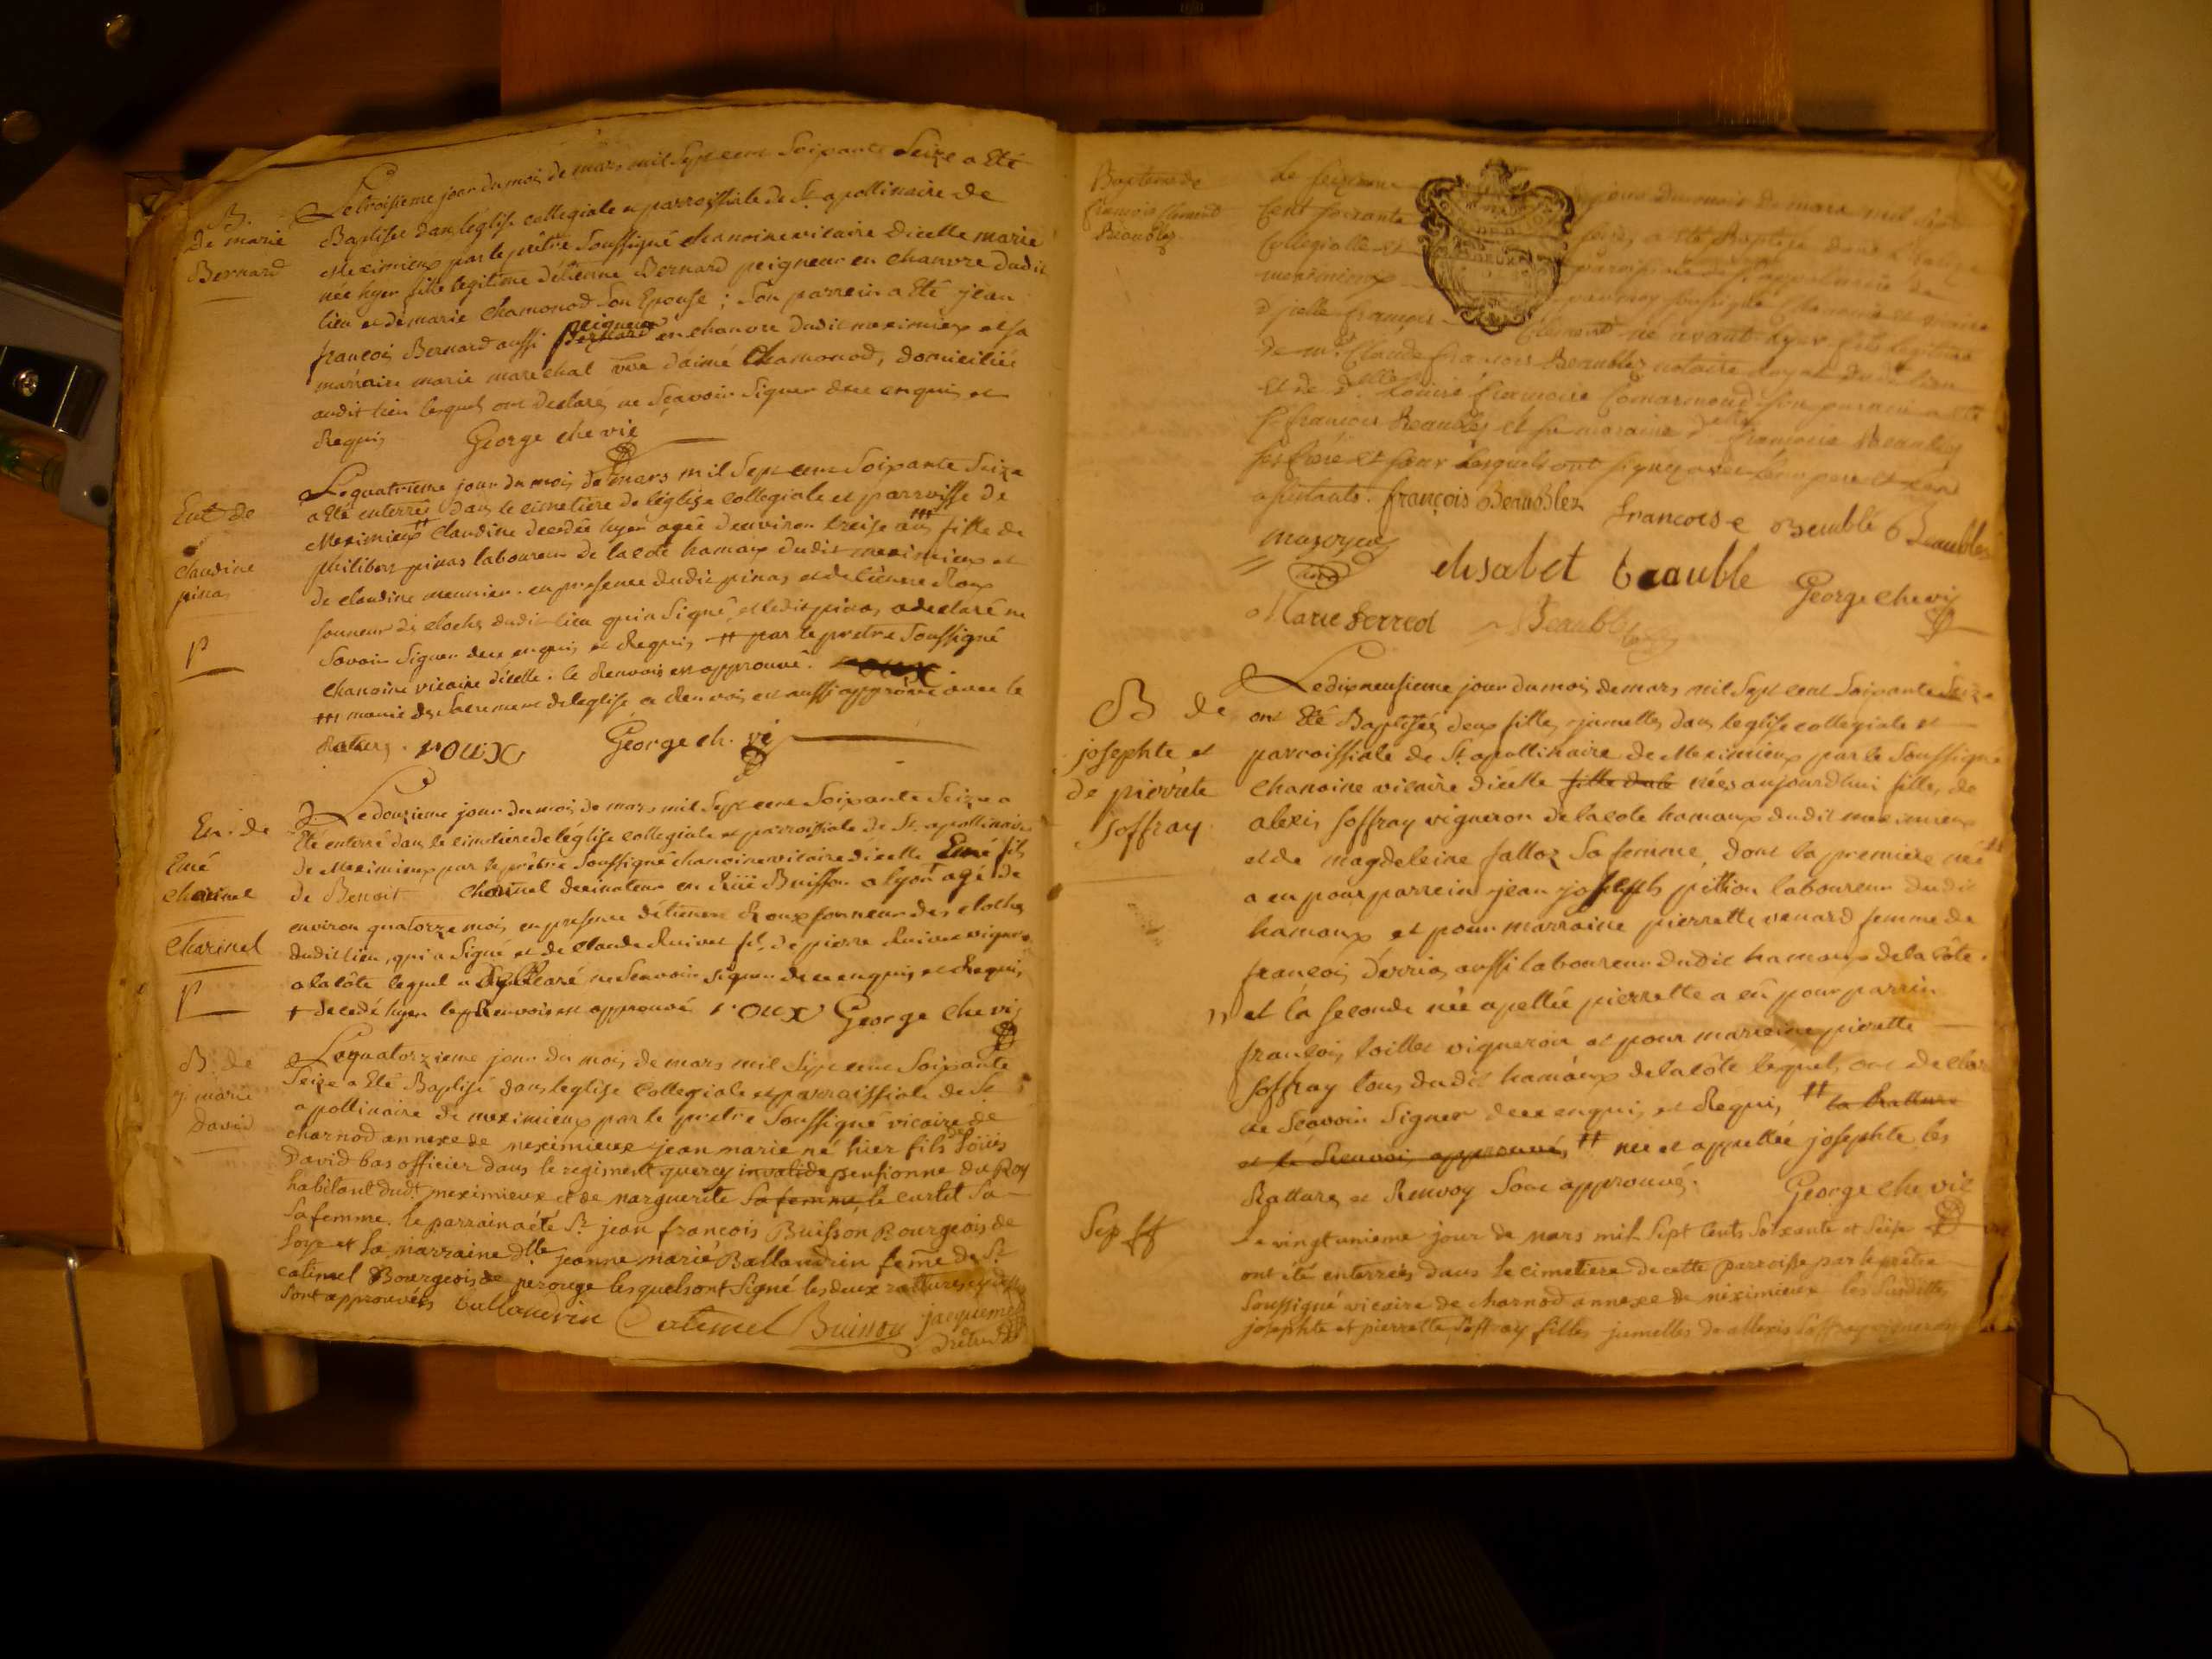 B.
De marie
Bernard
Le troisieme jour du mois de mars mil Sept cent Soixante Seize a Eté
Baptisée dans l'église collegiale et parroissiale de St. apollinaire de
Meximieux par le prêtre Soussigné chanoine vicaire d'icelle marie
née hyer fille legitime d'étienne Bernard peigneur en chanvre dudit
lieu et de marie Chamonod Son Epouse ; Son parrein a Eté jean
françois Bernard aussi peigneur en chanvre dudit meximieux et sa
marraine marie marechal vve d'aimé Chamonod, domiciliée
audit lieu lesquels ont declaré ne Sçavoir Signer dece enquis et
Requis George chevié
Ent de
claudine
pinas
P
Le quatrieme jour du mois de mars mil Sept cent Soixante Seize
a Eté enterrée dans le cimetiere de l'église collegiale et parroisse de
Meximieux †† Claudine decedée hyer agée d'environ treise ans ††† fille de
philibert pinas laboureur de la côte hamaux dudit meximieux et
de claudine meunier. en presence dudit pinas, et d'etienne Roux
sonneur de cloches dudit lieu qui a Signé, et ledit pinas a declaré ne
Savoir Signer dece enquis et Requis †† par le pretre Soussigné
chanoine vicaire d'icelle. le Renvois est approuvé. roux
††† munie des Sacremens de l'eglise ce Renvois est aussi approuvé avec la
Rature. roux George ch. vié
En. de
Emé
Charinel
Charinel
P
Le douzieme jour du mois de mars mil Sept cent Soixante Seize a
Eté enterré dans le cimetiere de l'église collegiale et parroissiale de St. apollinaire
de Meximieux par le prêtre Soussigné chanoine vicaire d'icelle Emé fils
de Benoit Charinel dessinateur en Ruë Buisson a lyon agé de
environ quatorze mois, en presence d'étienne Roux sonneur des cloches
dudit lieu, qui a Signé et de claude Ruivet fils de pierre Ruivet vigneron
a la côte lequel a declaré ne Scavoir signer de ce enquis et Requis,
† decedé hyer le Renvois est approuvé roux George chevié
B. de
j. marie
David
Le quatorzieme jour du mois de mars mil Sept cent Soixante
Seize a Eté Baptisé dans l'eglise Collegiale et parroissiale de St
apollinaire de meximieux par le pretre Soussigné vicaire de
charnod annexe de meximieux jean marie né hier fils de Loüis
David bas officier dans le regiment quercy invalide pensionné du Roy
habitant dudt meximieux et de marguerite sa femme, le curtet Sa
Sa femme. le parrain a été Sr. jean francois Buisson Bourgeois de
Loye et la marraine dlle jeanne marie Ballandrin feme de Sr
catimel Bourgeois de perouge lesquels ont Signé les deux rattures cy dessus
Sont approuvées ballandrin Catimel Buisson jacquemet
Baptême de
francois Clement
Beaublez
Le seizieme jour du mois de mars mil sept
Cent soixante seize, a été Baptisé dans l'eglise
Collegialle et paroissialle de St. appolinaire de
meximieux par moy soussigné Chanoine et vicaire
d'jcelle françois Clement né avant hyer fils legitime
de mr. Claude françois Beaublez notaire royal dudt lieu
et de dlle. Louise françoise Comarmond son parrain a été
Sr francois Beaublez et sa maraine dlle francoise Beaublez
ses frere et sœur lesquels ont signéz avec leur pere et les
assistants. françois BeauBlez francoise Beaublé Beaublez
mazoyer elisabet beauble George chevié
Marie ferred Beaublez
B de
josephte et
de pierrete
joffray
Le dix neufieme jour du mois de mars mil Sept cent Soixante Seize
ont Eté Baptisées deux filles jumelles dans l'eglise collegiale et
parroissiale de St. apollinaire de Meximieux par le Soussigné
chanoine vicaire d'icelle fille dale nées aujourd'hui filles de
alexis joffray vigneron de la cote hamaux dudit meximieux
et de magdeleine falloz Sa femme, dont la premiere née ††
a eu pour parrein jean joseph pittion laboureur dudit
hamaux et pour marraine pierrette venard femme de
francois derrias aussi laboureur dudit hamaux de la côte.
et la seconde née apellée pierrette a eû pour parrin
francois loillet vigneron et pour marreine pierette
joffray tous dudit hamaux de la côte lequels ont declaré
ne Scavoir Signer dece enquis et Requis, †† la Ratture
et le Renvois approuvés, †† née et appellée josephte les
Rattures et Renvoy Sont approuvés. George chevié
Sep
Le vingt unieme jour de mars mil Sept cents Soixante et Seise
ont été enterrées dans le cimetiere de cette parroisse par le prêtre
Soussigné vicaire de charnod annexe de meximieux les Susdittes
josephte et pierrette Joffray filles jumelles de allexis Joffray vigneron